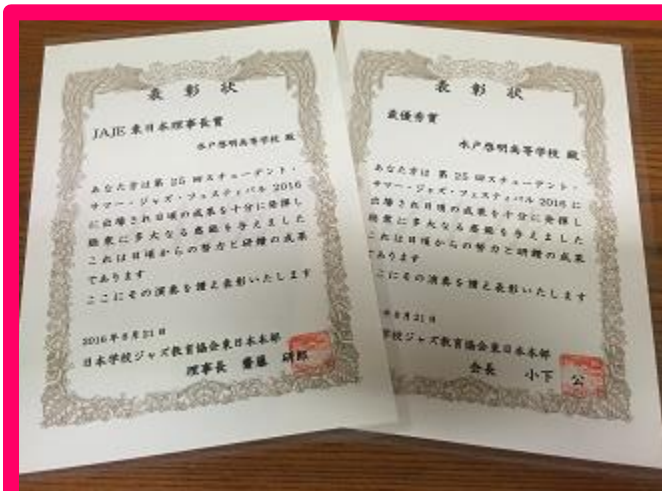 表彰状
JAJE 東日本理事長賞
水戸啓明高等学校 殿
あなた方は第 25 回スチューデント・
サマー・ジャズ・フェスティバル 2016
に出場され日頃の成果を十分に発揮し
聴衆に多大なる感銘を与えました
これは日頃からの努力と研鑽の成果
であります
ここにその演奏を讃え表彰いたします
2016年8月21日
日本学校ジャズ教育協会東日本本部
理事長 齋藤 研郎
表彰状
最優秀賞
水戸啓明高等学校 殿
あなた方は 第 25 回スチューデント・
サマー・ジャズ・フェスティバル 2016 に
出場され日頃の成果を十分に発揮し
聴衆に多大なる感銘を与えました
これは日頃からの努力と研鑽の成果
であります
ここにその演奏を讃え表彰いたします
年8月21日
学校ジャズ教育協会東日本本部
会長 小下 公